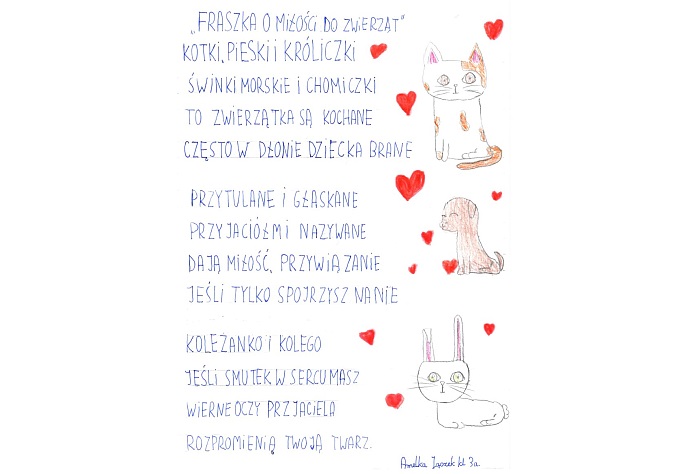 „FRASZKA O MIŁOŚCI DO ZWIERZĄT"
KOTKI, PIESKI I KRÓLICZKI
ŚWINKI MORSKIE I CHOMICZKI
TO ZWIERZĄTKA SĄ KOCHANE
CZĘSTO W DŁONIE DZIECKA BRANE
PRZYTULANE I GŁASKANE
PRZYJACIÓŁMI NAZYWANE
DAJĄ MIŁOŚĆ, PRZYWIĄZANIE
JEŚLI TYLKO SPOJRZYSZ NA NIE
KOLEŻANKO I KOLEGO
JEŚLI SMUTEK W SERCU MASZ
WIERNE OCZY PRZJACIELA
ROZPROMIENIĄ TWOJĄ TWARZ.
kl 3a